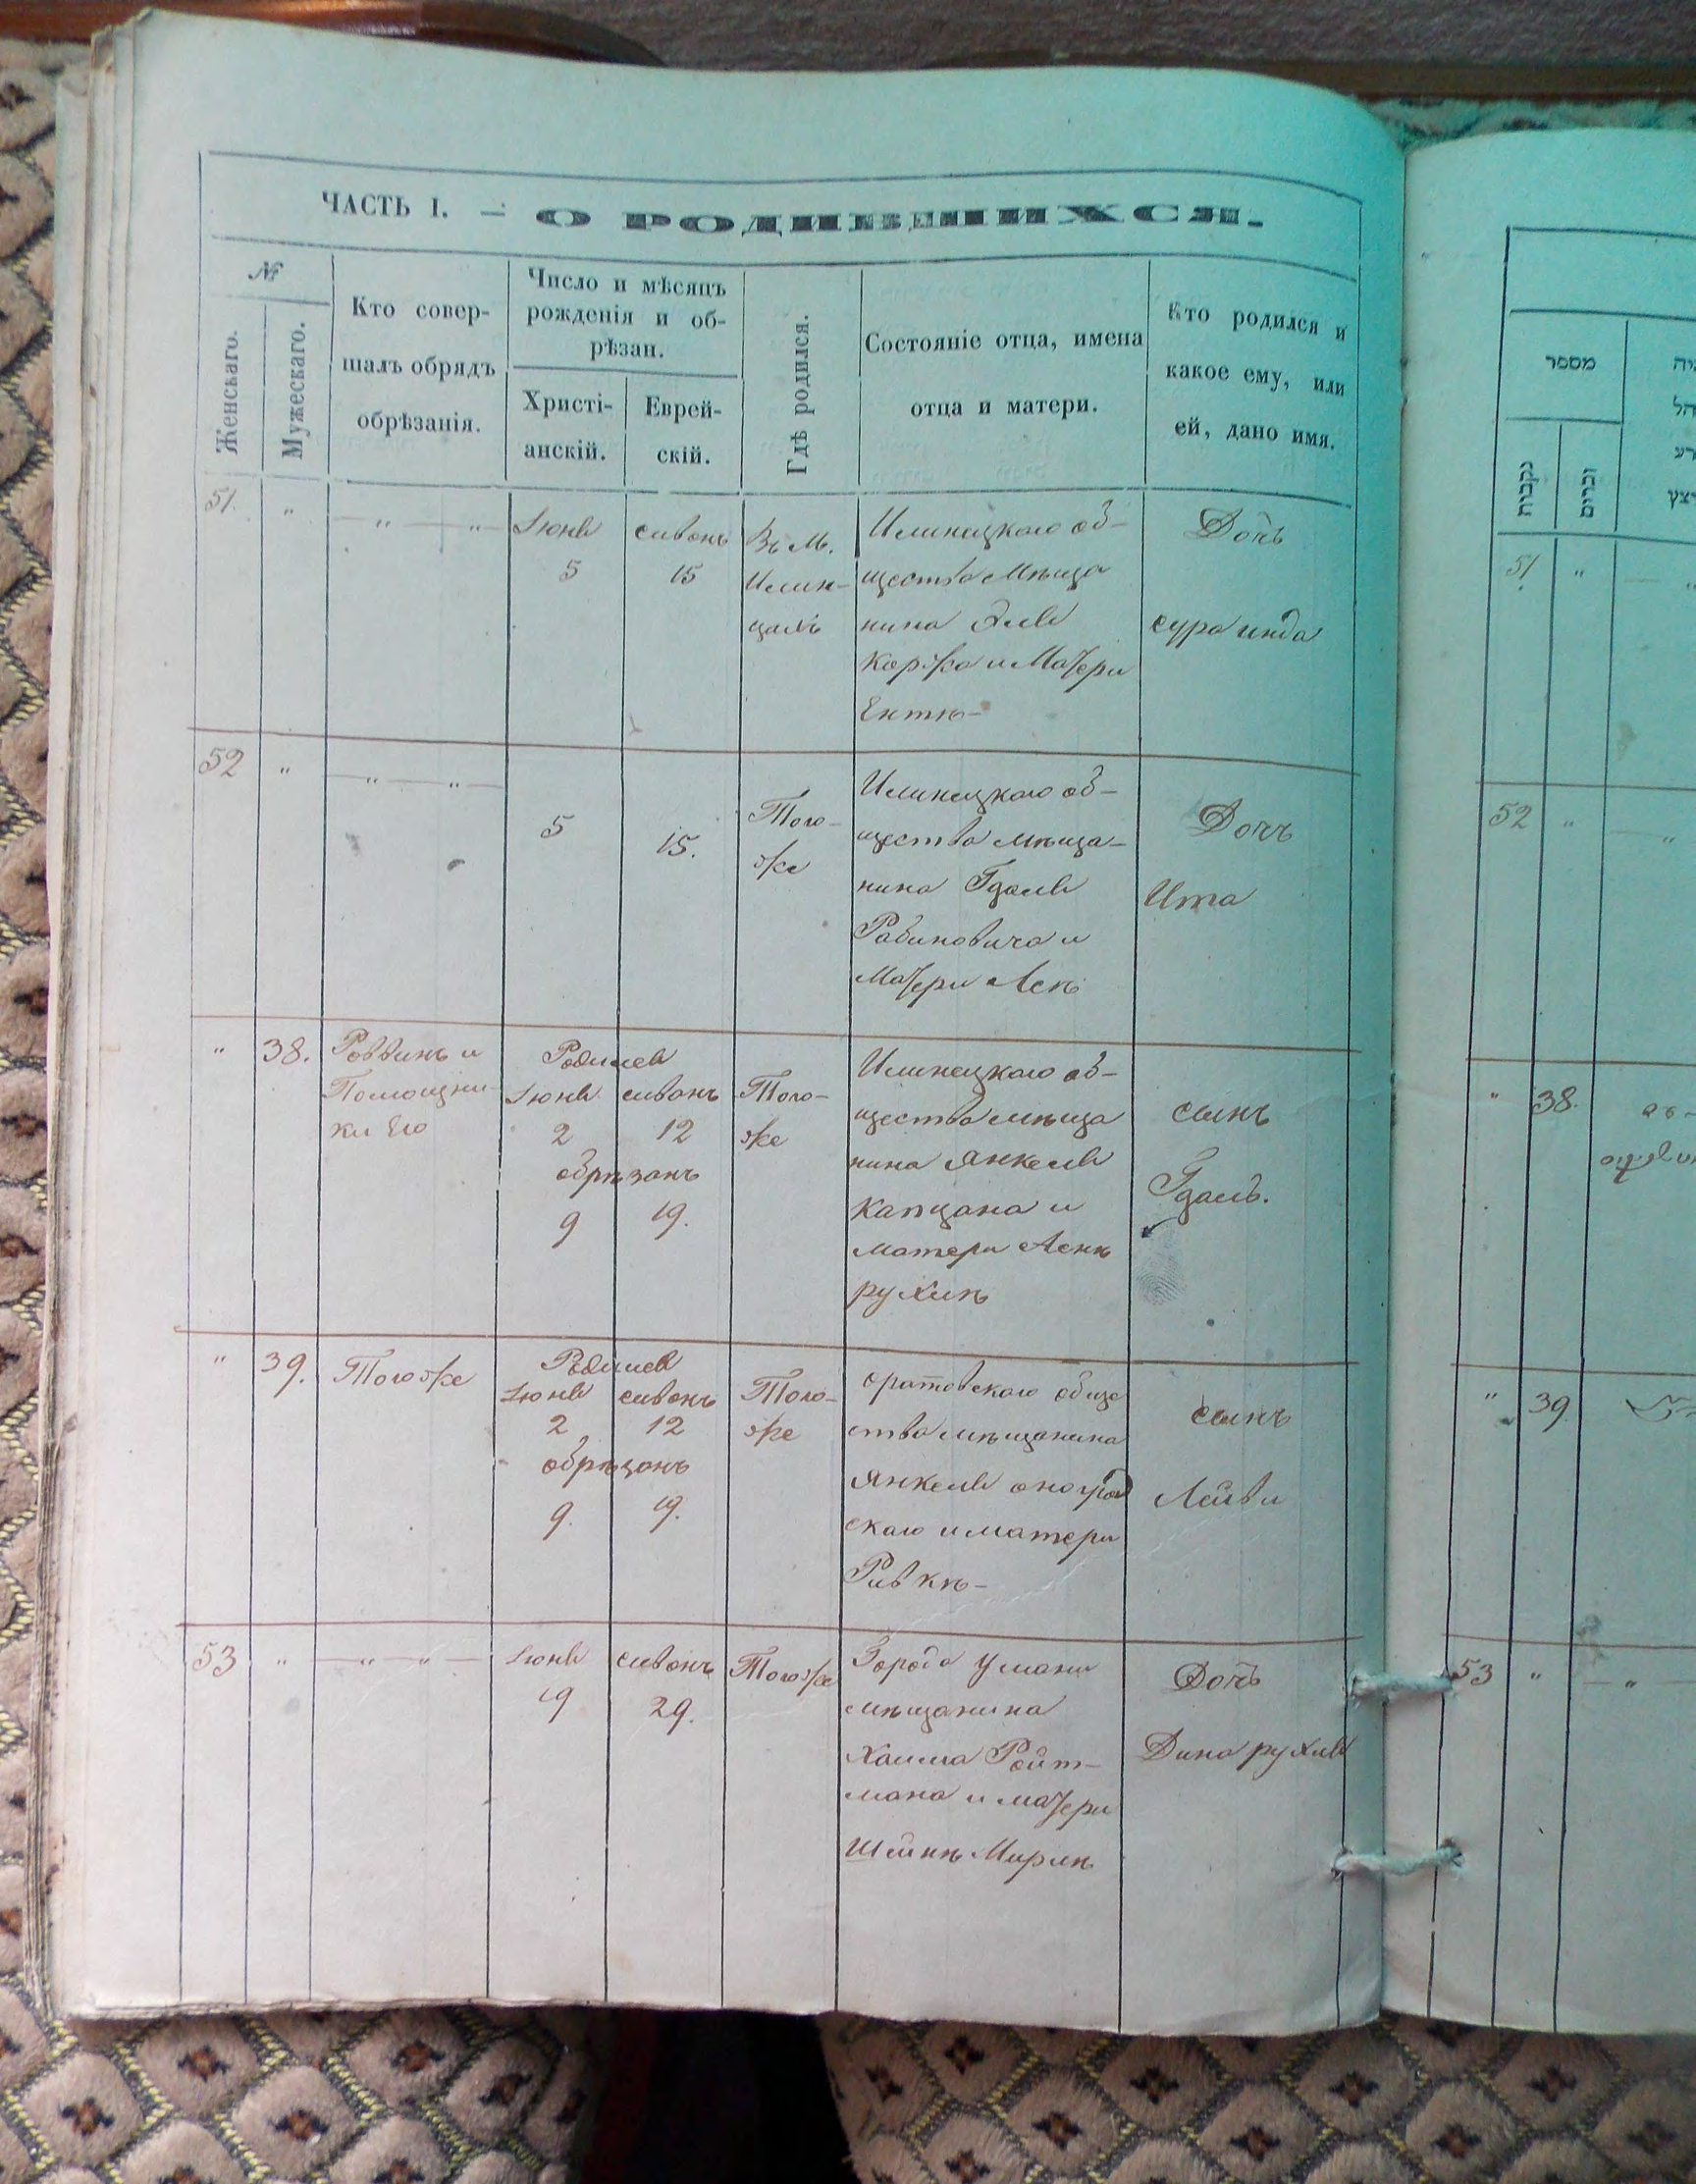 ЧАСТЬ I. — О РОДИВШИХСЯ.
№
Женскаго.
Мужескаго.
Кто совер-
шалъ обрядъ
обрѣзанія.
Число и мѣсяцъ
рожденія и об-
рѣзан.
Христі-
анскій.
Еврей-
скій.
Гдѣ родился.
Состояніе отца, имена
отца и матери.
Кто родился и
какое ему, или
ей, дано имя.
51. " — " — " —
Іюня
5
сивонъ
15
Въ М.
Илин-
цахъ
Илинецкаго об-
щества мѣща
нина Эли
Коржа и Матери
Ентѣ-
Дочь
сура инда
52 " — " — " —
5
15.
Того-
же
Илинецкаго об-
щества мѣща-
нина Гдали
Рабиновича и
Матери Асѣ
Дочъ
Ита
" 38.
Раввинъ и
Помощни-
ки Его
Родился
Іюня сивонъ
2 12
обрѣзанъ
9 19.
Того-
же
Илинецкаго об-
щества мѣща
нина Янкеля
Капцана и
матери Аснѣ
рухлѣ
сынъ
Гдаль.
" 39.
Тогоже
Родился
Іюня сивонъ
2 12
обрѣзанъ
9. 19.
Того-
же
оратовскаго обще
ства мѣщанина
Янкеля
скаго и матери
Ривкѣ-
сынъ
Лейви
53 " — " — " —
Іюня
19
сивонъ
29.
Тогоже
Города Умани
мѣщанина
Хаима Ройт-
мана и матери
Шейнѣ Мирлѣ
Дочь
Дина рухля
מספר
נקבות
זכרים
51 "
52 "
" 38.
" 39
53 "